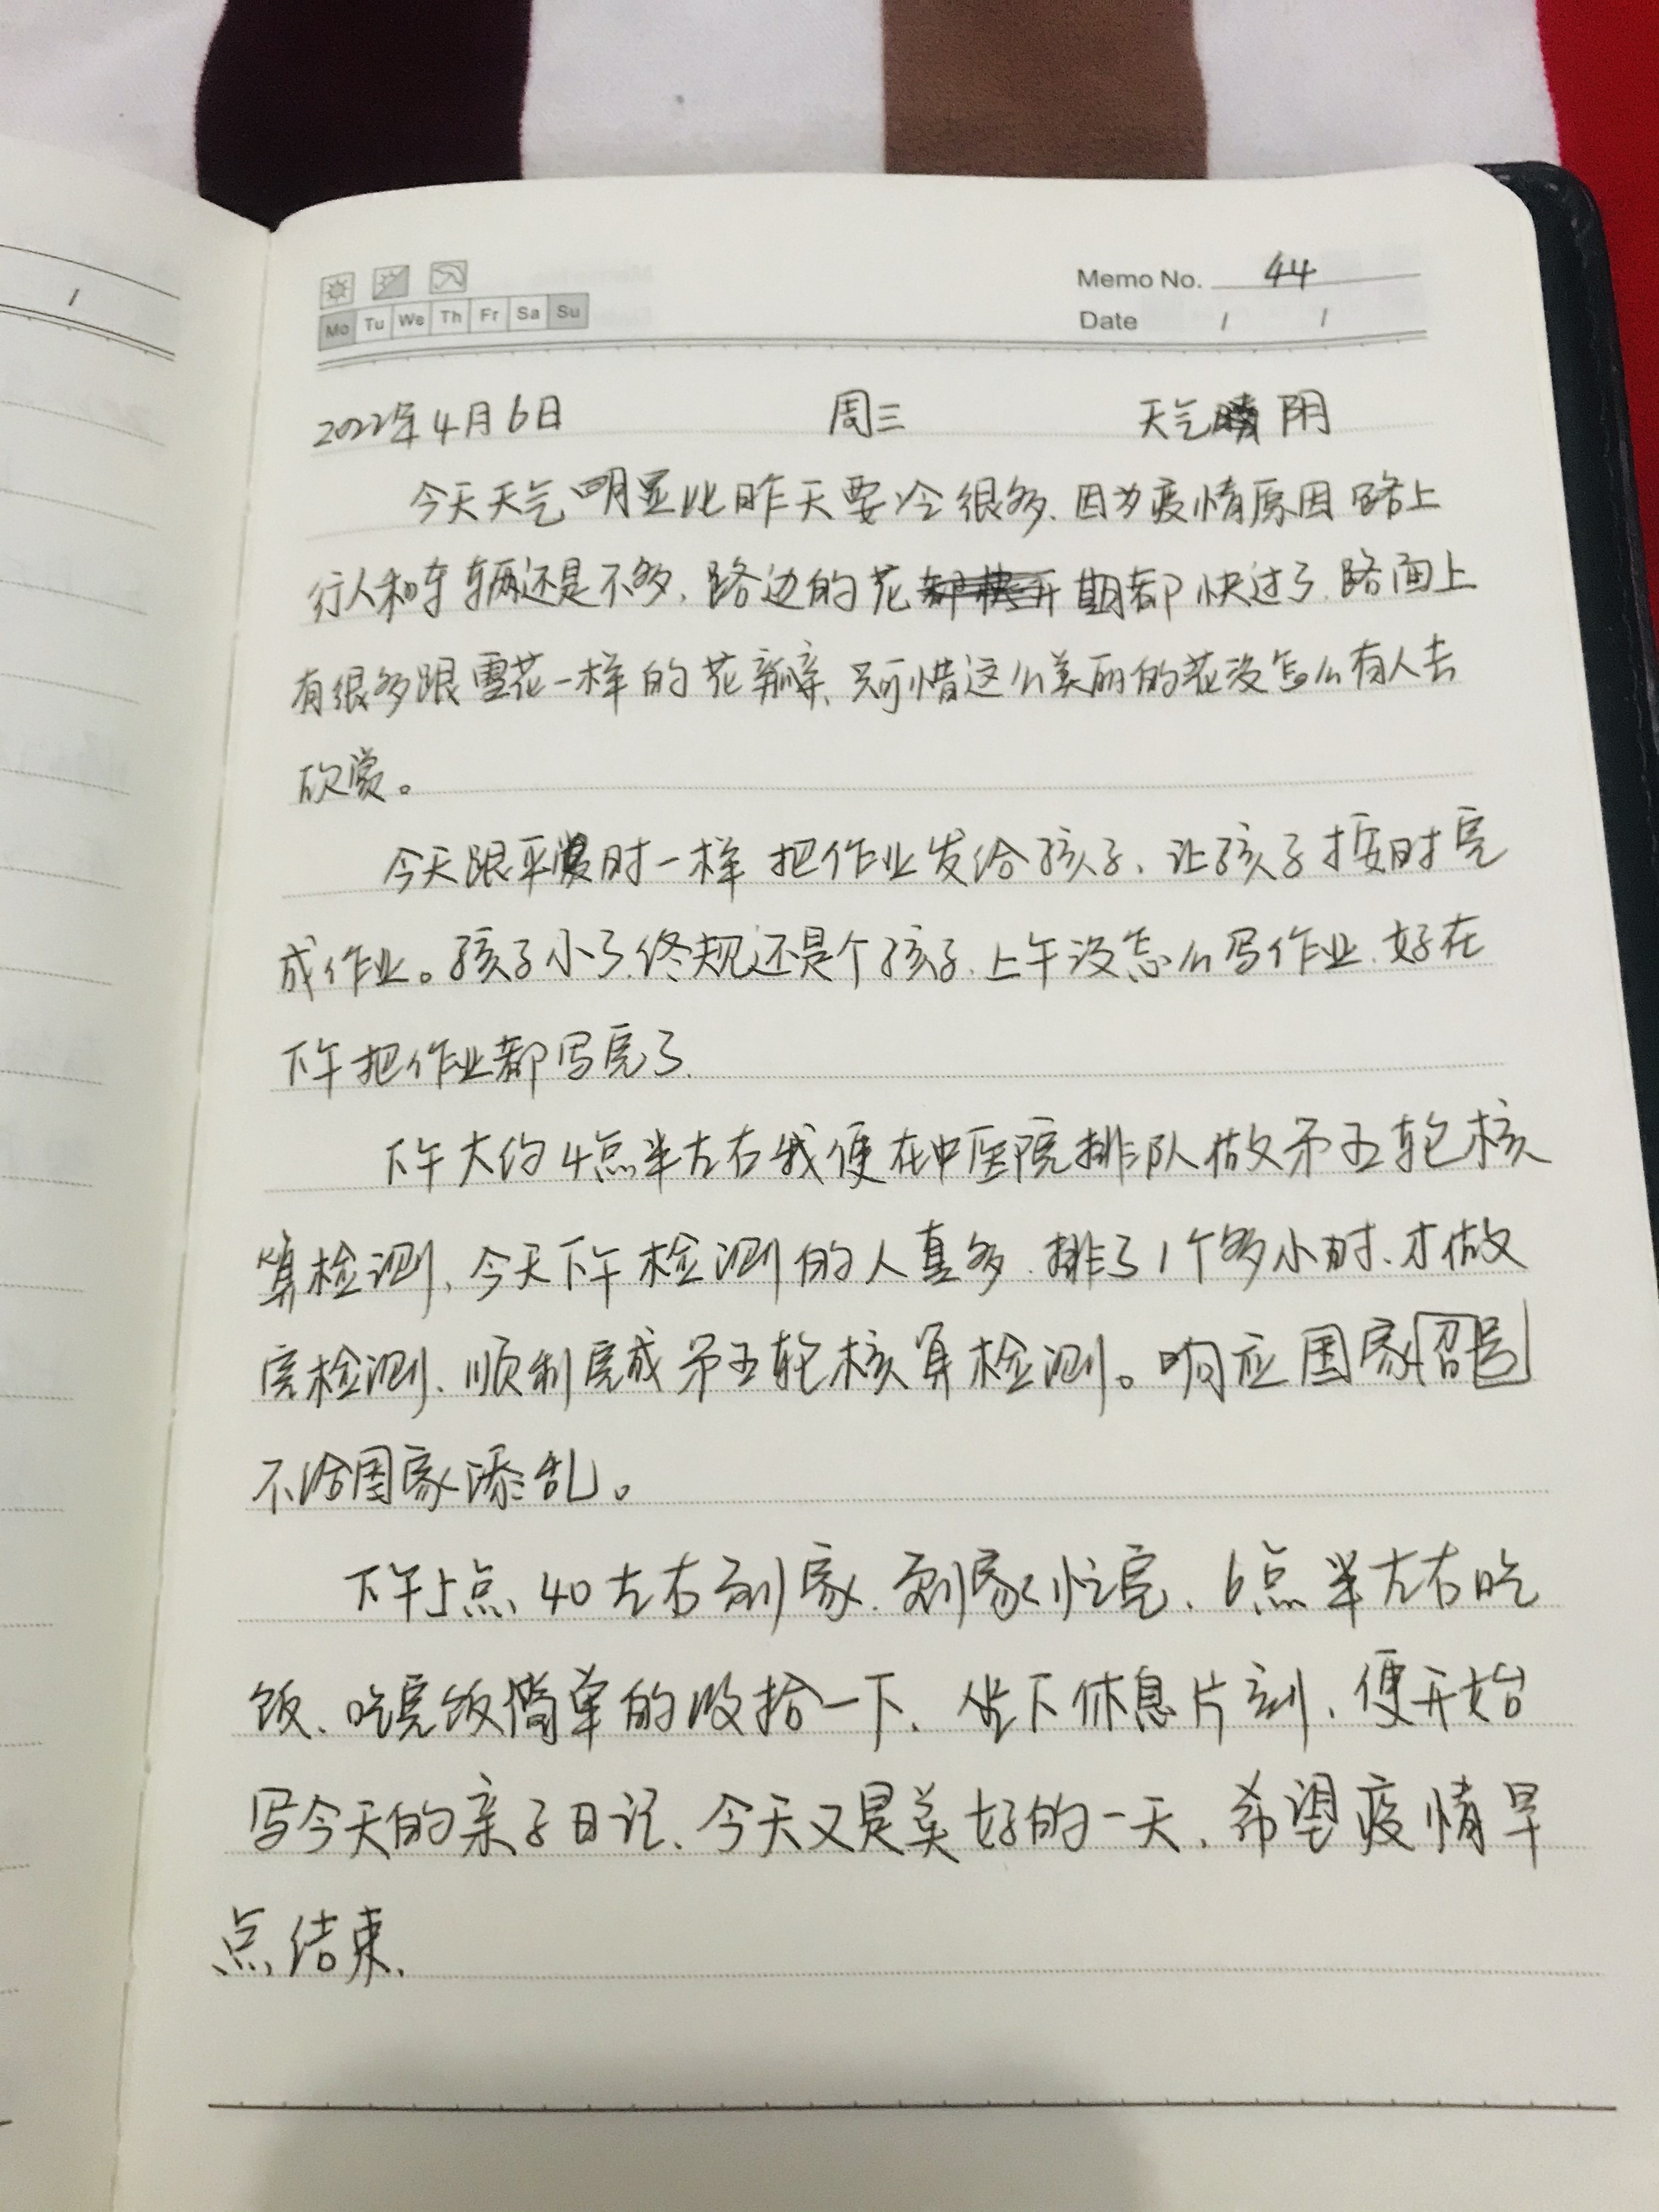 Memo No. 44
Mo Tu We Th Fr Sa Su
Date / /
2022年4月6日 周三 天气阴
今天天气明显比昨天要冷很多、因为疫情原因路上
行人和车辆还是不多、路边的花期都快过了、路面上
有很多跟雪花一样的花瓣、只可惜这么美丽的花没怎么有人去
欣赏。
今天跟平时一样把作业发给孩子、让孩子按时完
成作业。孩子小了、终规还是个孩子、上午没怎么写作业、好在
下午把作业都写完了、
下午大约4点半左右我便在中医院排队做第五轮核
算检测、今天下午检测的人真多、排了1个多小时、才做
完检测、顺利完成第五轮核算检测。响应国家召号
不给国家添乱。
下午5点40左右到家、到家忙完、6点半左右吃
饭、吃完饭简单的收拾一下、坐下休息片刻、便开始
写今天的亲子日记、今天又是美好的一天、希望疫情早
点结束、